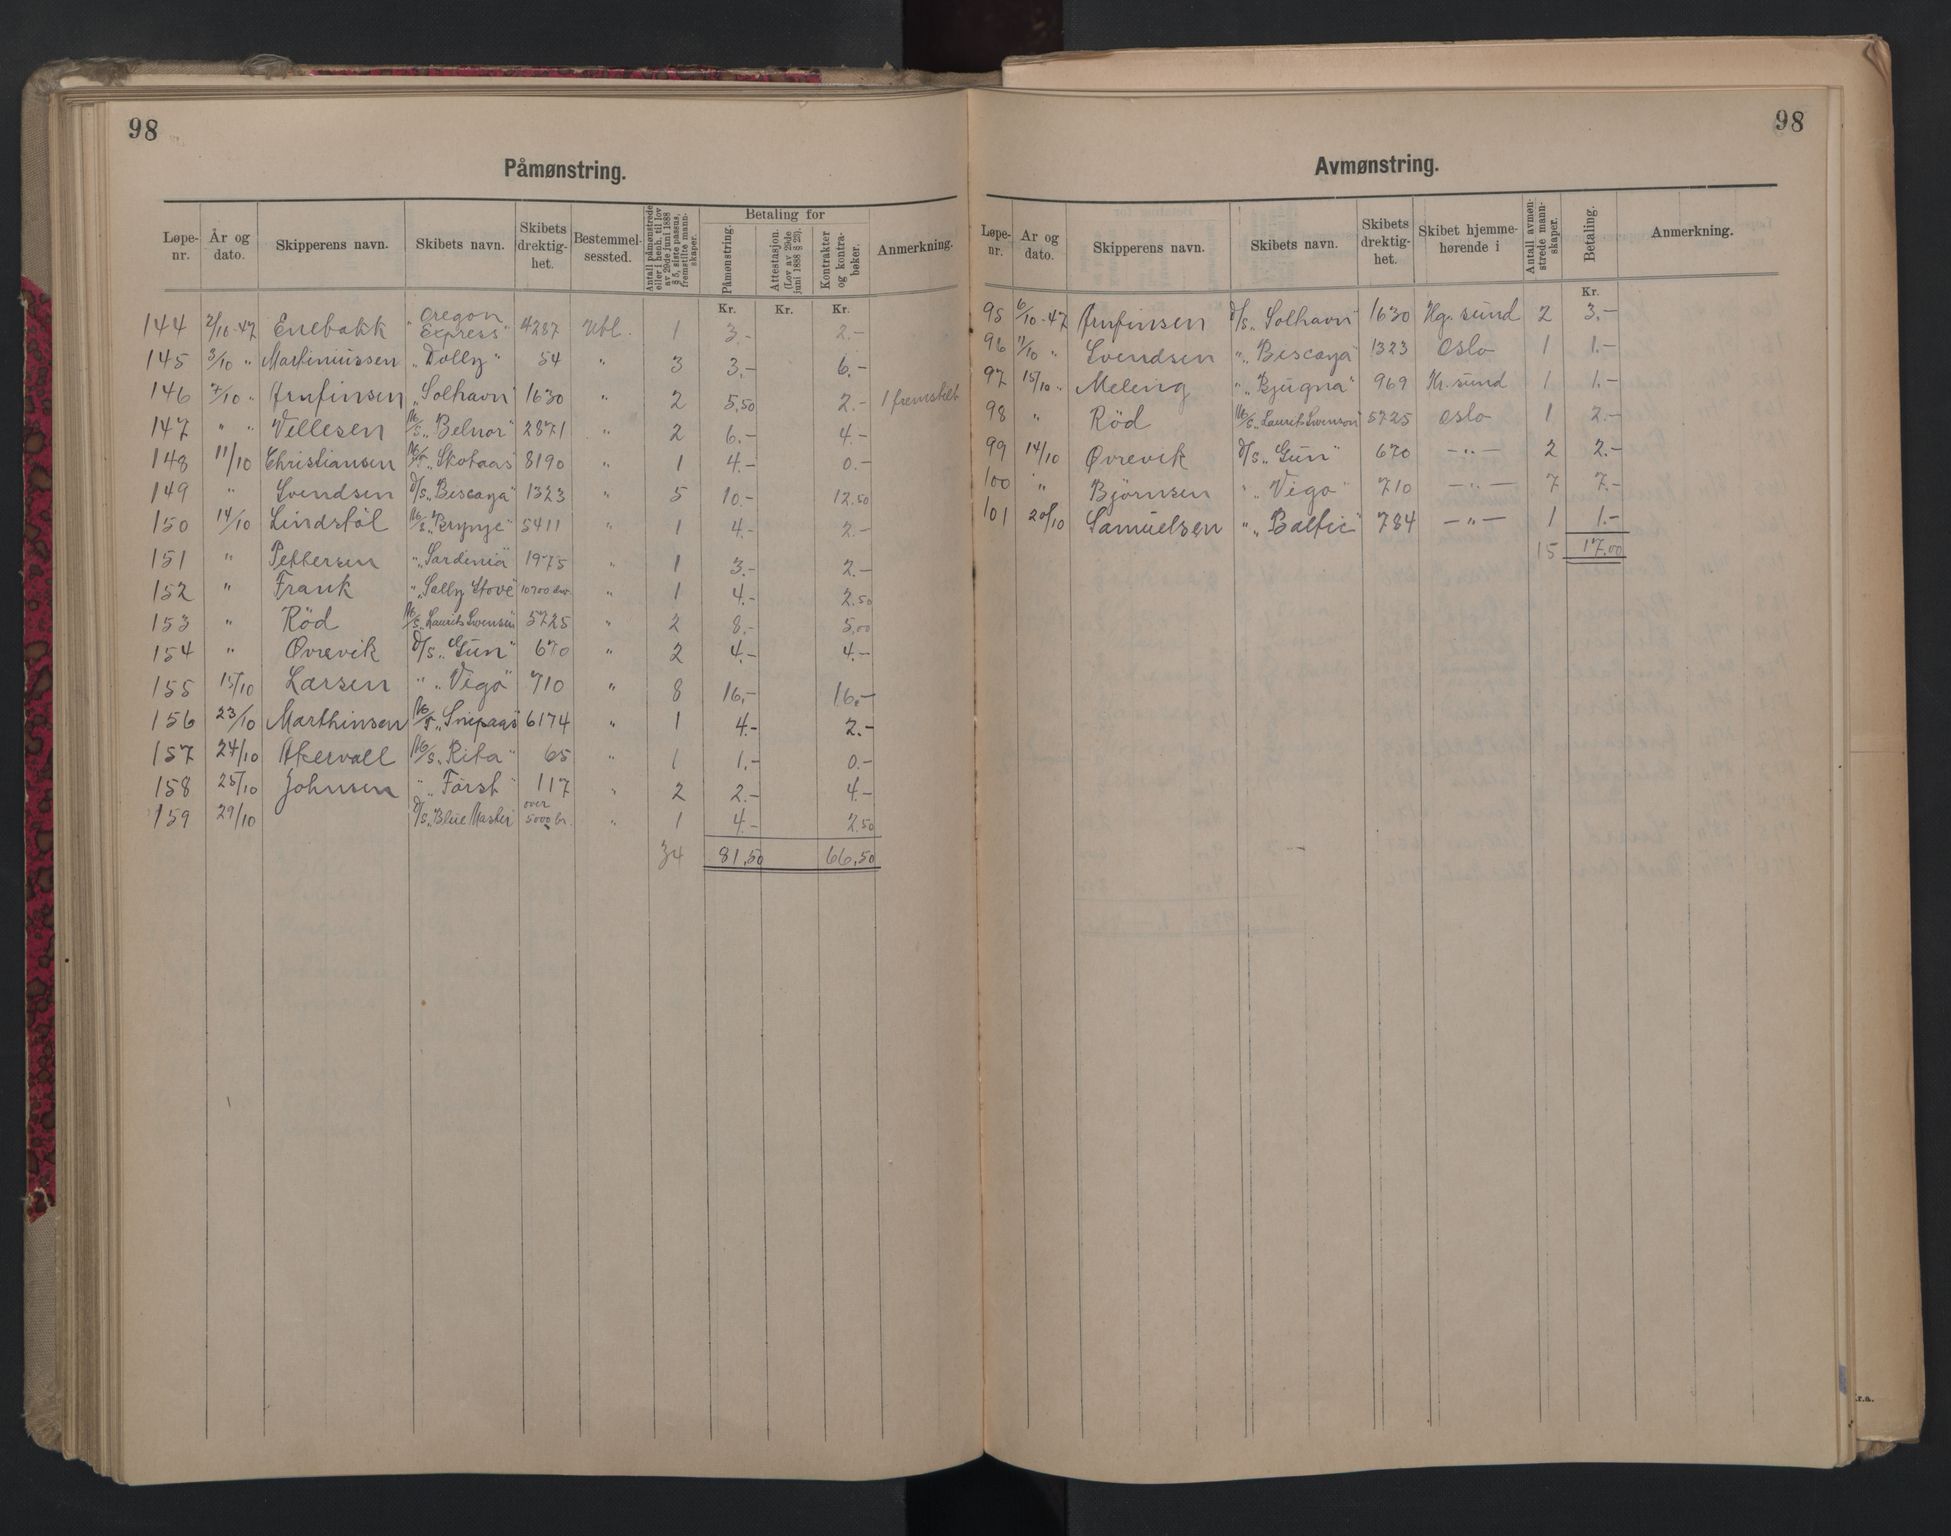 98
Påmønstring.
Løpe-nr. | År og dato. | Skipperens navn. | Skibets navn. | Skibets drektig-het. | Bestemmel-sessted. | Antall påmønstrede eller i henh. til lov av 29de juni 1888 § 5, siste passus, fremstilte mann-skaper. | Betaling for | Påmønstring. | Attestasjon. (Lov av 29de juni 1888 § 23). | Kontrakter og kontra-bøker. | Anmerkning.
Kr. Kr. Kr.
144 2/10-47 Enebakk "Oregon Express" 4287 Utl. 1 3.- 2.-
145 3/10 " Martiniussen "Dolly" 54 " 3 3.- 6.-
146 7/10 " Arnfinsen "Solhavn" 1630 " 2 5,50 2.- 1 fremstilt
147 " " Vellesen M/S "Belnor" 2871 " 2 6.- 4.-
148 11/10 Christiansen M/T "Skotaas" 8190 " 1 4.- 0.-
149 " Svendsen D/S "Biscaya" 1323 " 5 10.- 12.50
150 14/10 Lindstöl M/S "Brynje" 5411 " 1 4.- 2.-
151 " Pettersen " "Sardinia" 1975 " 1 3.- 2.-
152 " Frank " "Solby Stove" 10700 dw. " 1 4.- 2.50
153 " Röd M/S "Laurits Swenson" 5725 " 2 8.- 5,00
154 " Ovrevik D/S "Gun" 670 " 2 4.- 4.-
155 15/10 Larsen " "Vigo" 710 " 8 16,- 16.-
156 23/10 Marthinsen M/T "Snepaas" 6174 " 1 4.- 2.-
157 24/10 Akervall M/S "Rita" 65 " 1 1.- 0.-
158 25/10 Johnsen " "Först" 117 " 2 2.- 4.-
159 29/10 D/S "Blue Master" over 5000 br. " 1 4.- 2.50
34 81,50 66,50
98
Avmønstring.
Løpe-nr. | År og dato. | Skipperens navn. | Skibets navn. | Skibets drektig-het. | Skibet hjemme-hørende i | Antall avmøn-strede mann-skaper. | Betaling. | Anmerkning.
Kr.
95 6/10-47 Arnfinsen D/S "Solhavn" 1630 Hg.sund 2 3.-
96 11/10 " Svendsen " "Biscaya" 1323 Oslo 1 1.-
97 15/10 " Meling " "Bjugna" 969 Kr.sund 1 1.-
98 " Röd M/S "Laurits Swenson" 5725 Oslo 1 2.-
99 14/10 Ovrevik D/S "Gun" 670 -"- 2 2.-
100 " Björnsen " "Vigo" 710 -"- 7 7.-
101 20/10 Samuelsen " "Baltic" 784 -"- 1 1.-
15 17.00